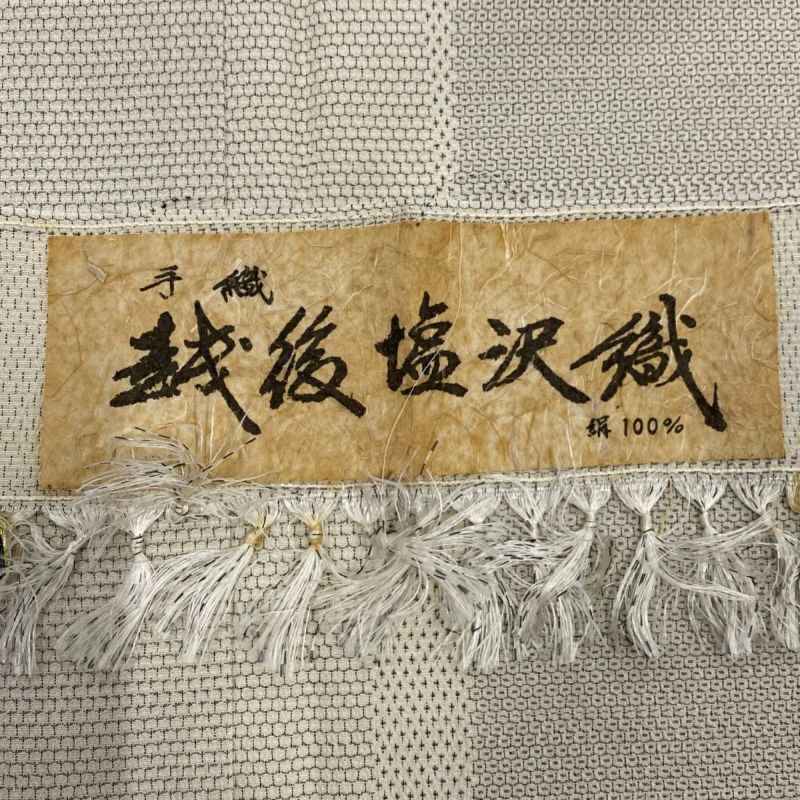 手織
越後塩沢織
絹100%